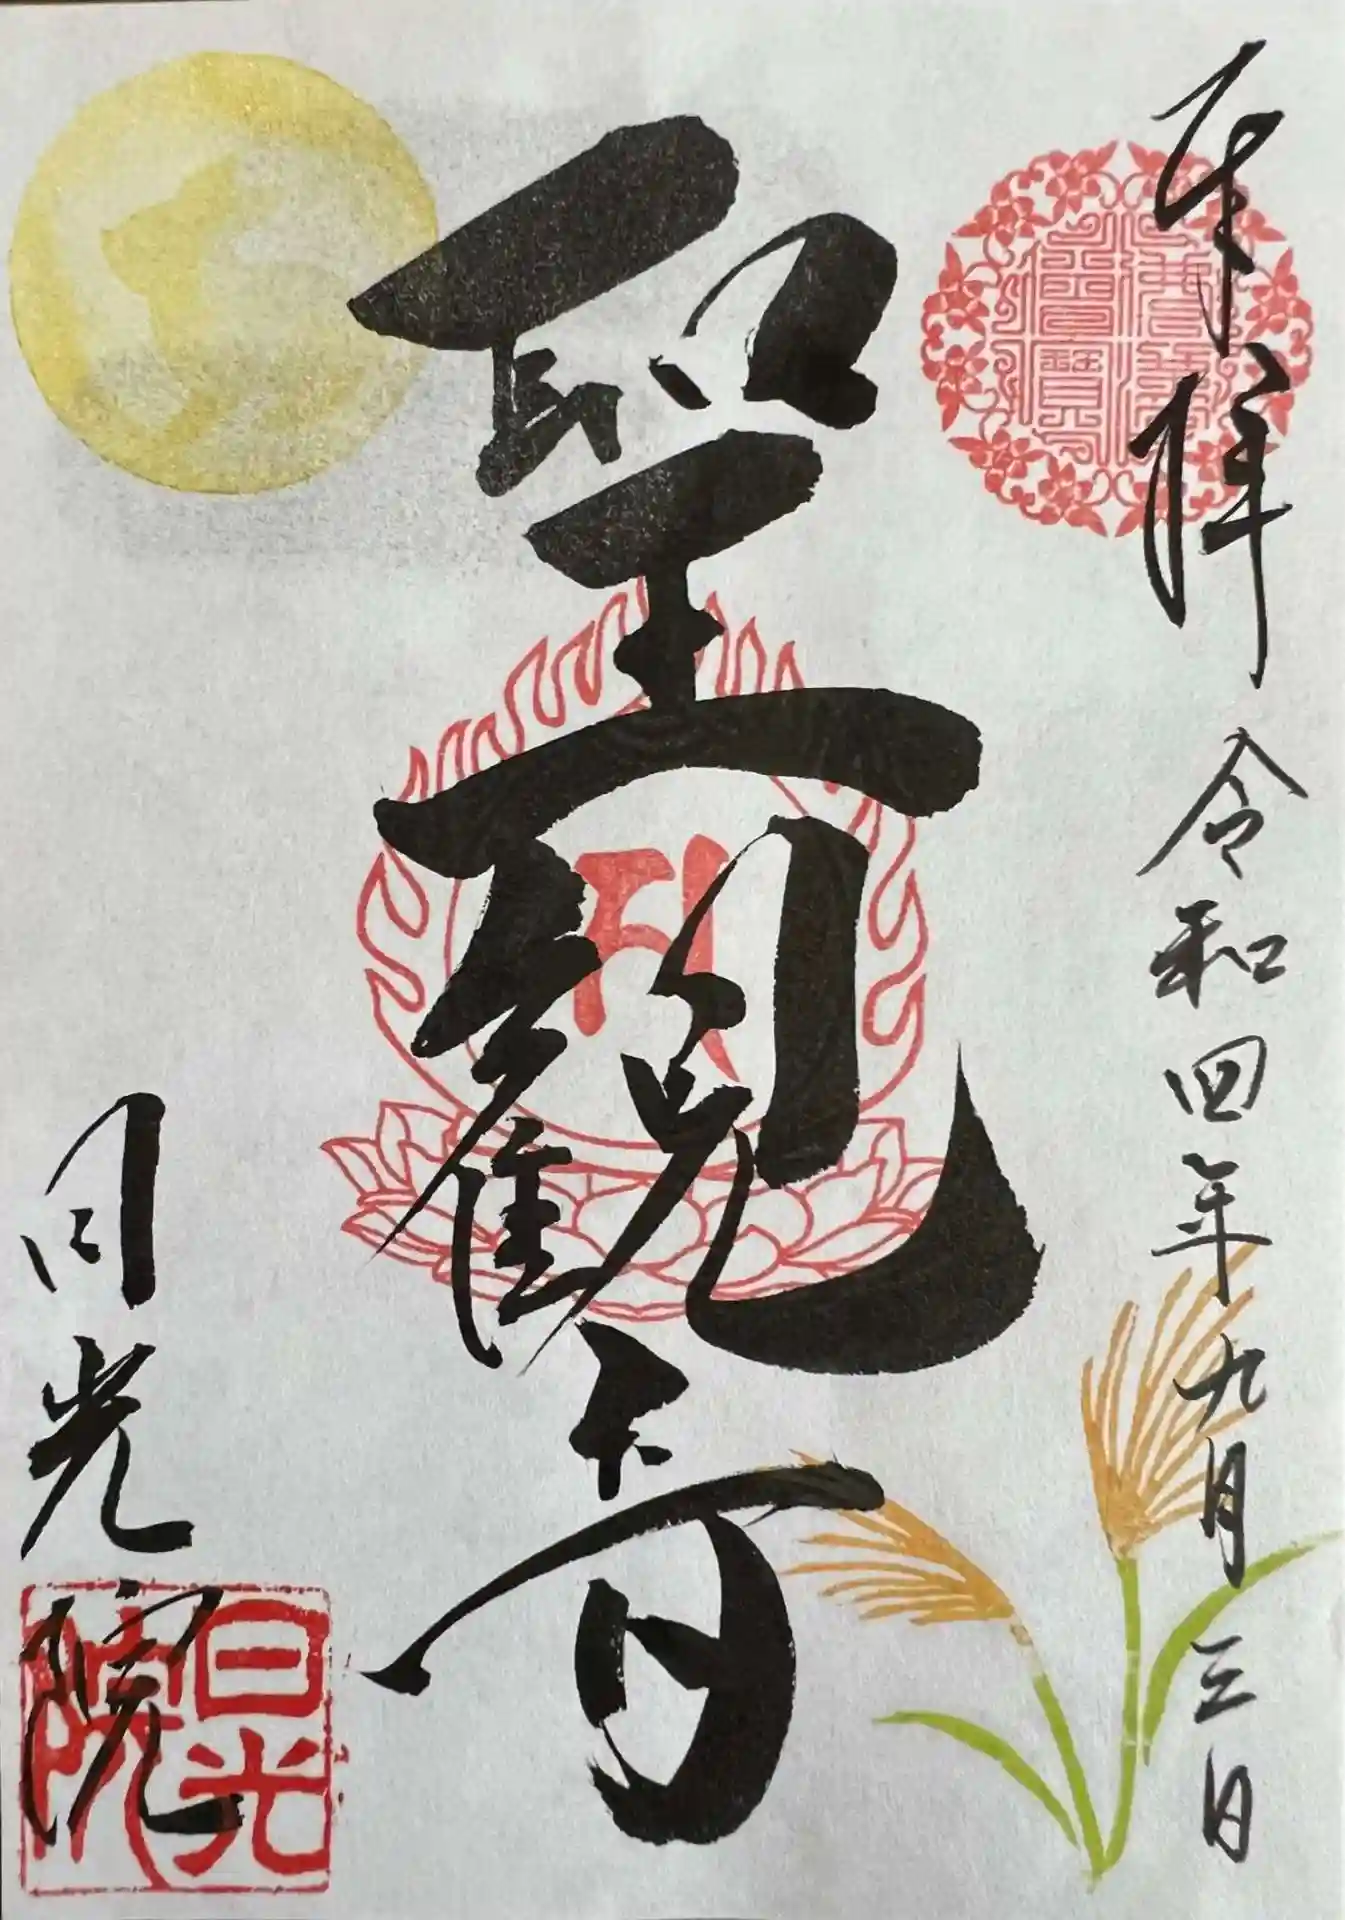 奉拝
令和四年九月三日
聖観音
日光院
日光院